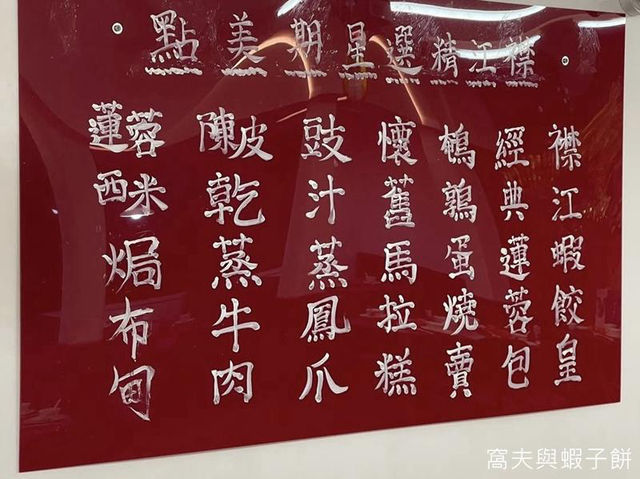 襟江精選星期美點
襟江蝦餃皇
經典蓮蓉包
鵪鶉蛋燒賣
懷舊馬拉糕
豉汁蒸鳳爪
陳皮乾蒸牛肉
蓮蓉西米焗布甸
窩夫與蝦子餅